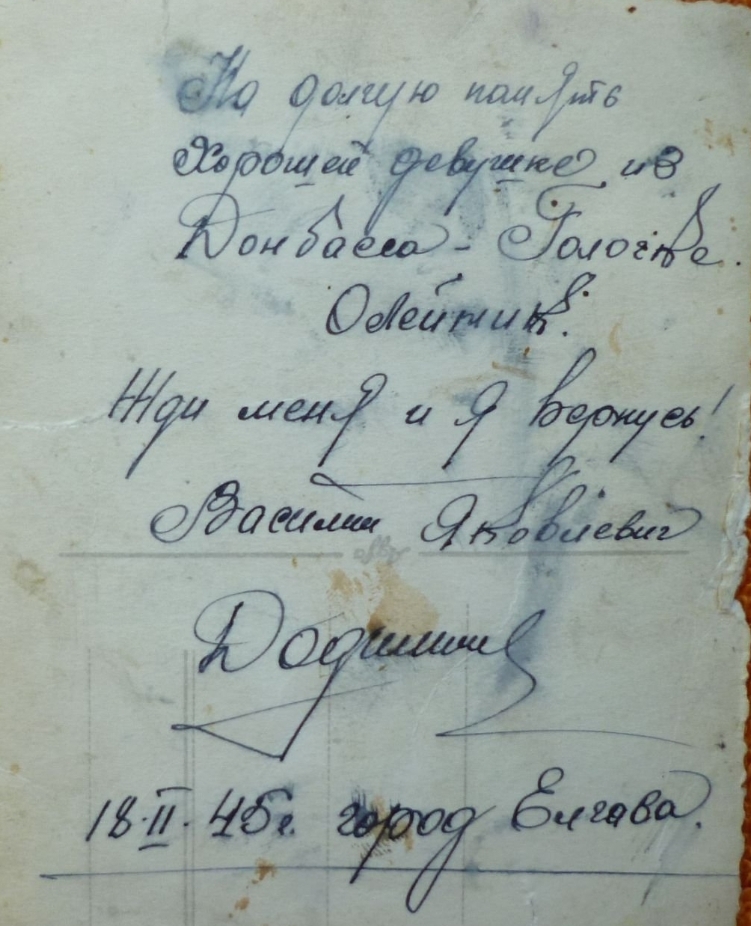 На долгую память
Хорошей девушке из
Донбасса - Галочке.
Олейник.
Жди меня и я вернусь!
Василий Яковлевич
Agfa
18.II.45г. город Елгава.